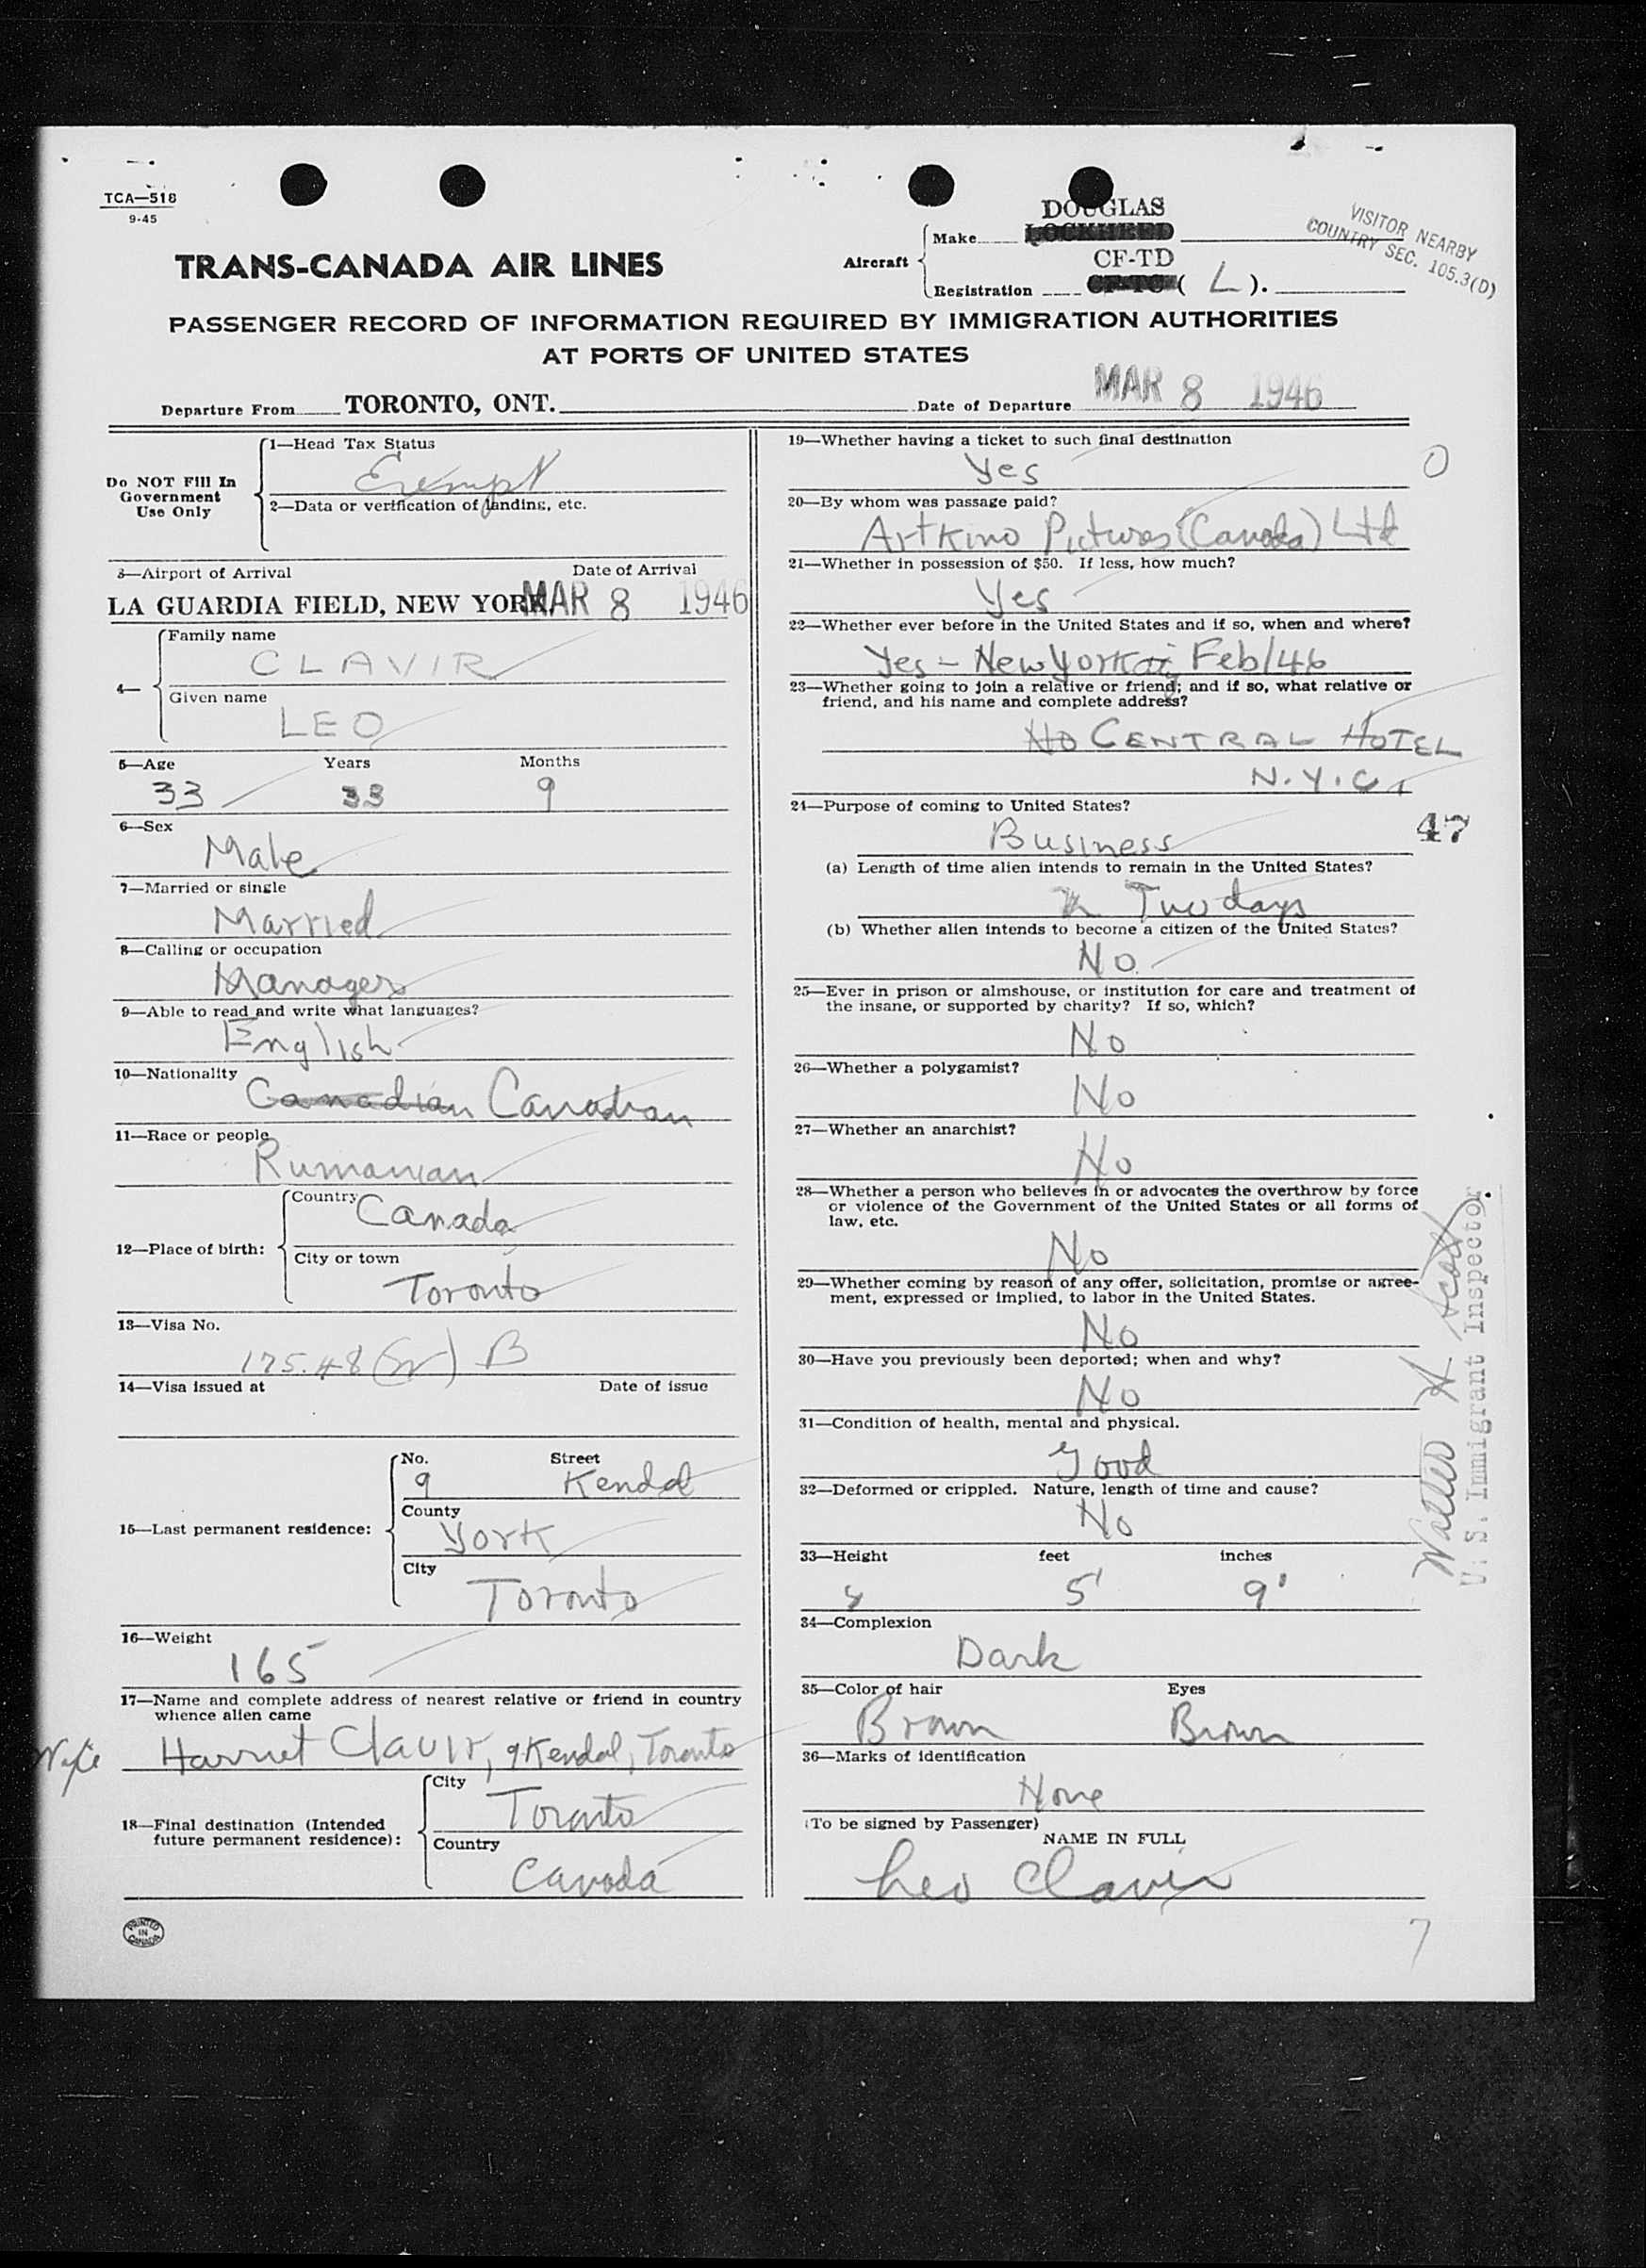 TCA—518
9-45
TRANS-CANADA AIR LINES
Aircraft
Make
DOUGLAS
LOCKHEED
CF-TD
Registration
CF-TC ( L ).
VISITOR NEARBY
COUNTRY SEC. 105.3(D)
PASSENGER RECORD OF INFORMATION REQUIRED BY IMMIGRATION AUTHORITIES
AT PORTS OF UNITED STATES
Departure From TORONTO, ONT.
Date of Departure MAR 8 1946
Do NOT Fill In
Government
Use Only
1—Head Tax Status
Exempt
2—Data or verification of landing, etc.
3—Airport of Arrival Date of Arrival
LA GUARDIA FIELD, NEW YORK MAR 8 1946
4—
Family name
CLAVIR
Given name
LEO
5—Age Years Months
33 33 9
6—Sex
Male
7—Married or single
Married
8—Calling or occupation
Manager
9—Able to read and write what languages?
English
10—Nationality
Canadian Canadian
11—Race or people
Rumanian
12—Place of birth:
Country
Canada
City or town
Toronto
13—Visa No.
175.48 B
14—Visa issued at Date of issue
15—Last permanent residence:
No. Street
9 Kendal
County
York
City
Toronto
16—Weight
165
17—Name and complete address of nearest relative or friend in country
whence alien came
Wife Harriet Clavir, 9 Kendal, Toronto
18—Final destination (Intended
future permanent residence):
City
Toronto
Country
Canada
PRINTED
IN
CANADA
19—Whether having a ticket to such final destination
Yes
0
20—By whom was passage paid?
Artkino Pictures (Canada) Ltd
21—Whether in possession of $50. If less, how much?
Yes
22—Whether ever before in the United States and if so, when and where?
Yes – New York Feb/46
23—Whether going to join a relative or friend; and if so, what relative or
friend, and his name and complete address?
No CENTRAL HOTEL
N.Y.C.
24—Purpose of coming to United States?
Business
47
(a) Length of time alien intends to remain in the United States?
Two days
(b) Whether alien intends to become a citizen of the United States?
No
25—Ever in prison or almshouse, or institution for care and treatment of
the insane, or supported by charity? If so, which?
No
26—Whether a polygamist?
No
27—Whether an anarchist?
No
28—Whether a person who believes in or advocates the overthrow by force
or violence of the Government of the United States or all forms of
law, etc.
No
29—Whether coming by reason of any offer, solicitation, promise or agree-
ment, expressed or implied, to labor in the United States.
No
30—Have you previously been deported; when and why?
No
31—Condition of health, mental and physical.
Good
32—Deformed or crippled. Nature, length of time and cause?
No
33—Height feet inches
5' 9'
34—Complexion
Dark
35—Color of hair Eyes
Brown Brown
36—Marks of identification
None
(To be signed by Passenger)
NAME IN FULL
Leo Clavir
Walter H Scott
U. S. Immigrant Inspector
7